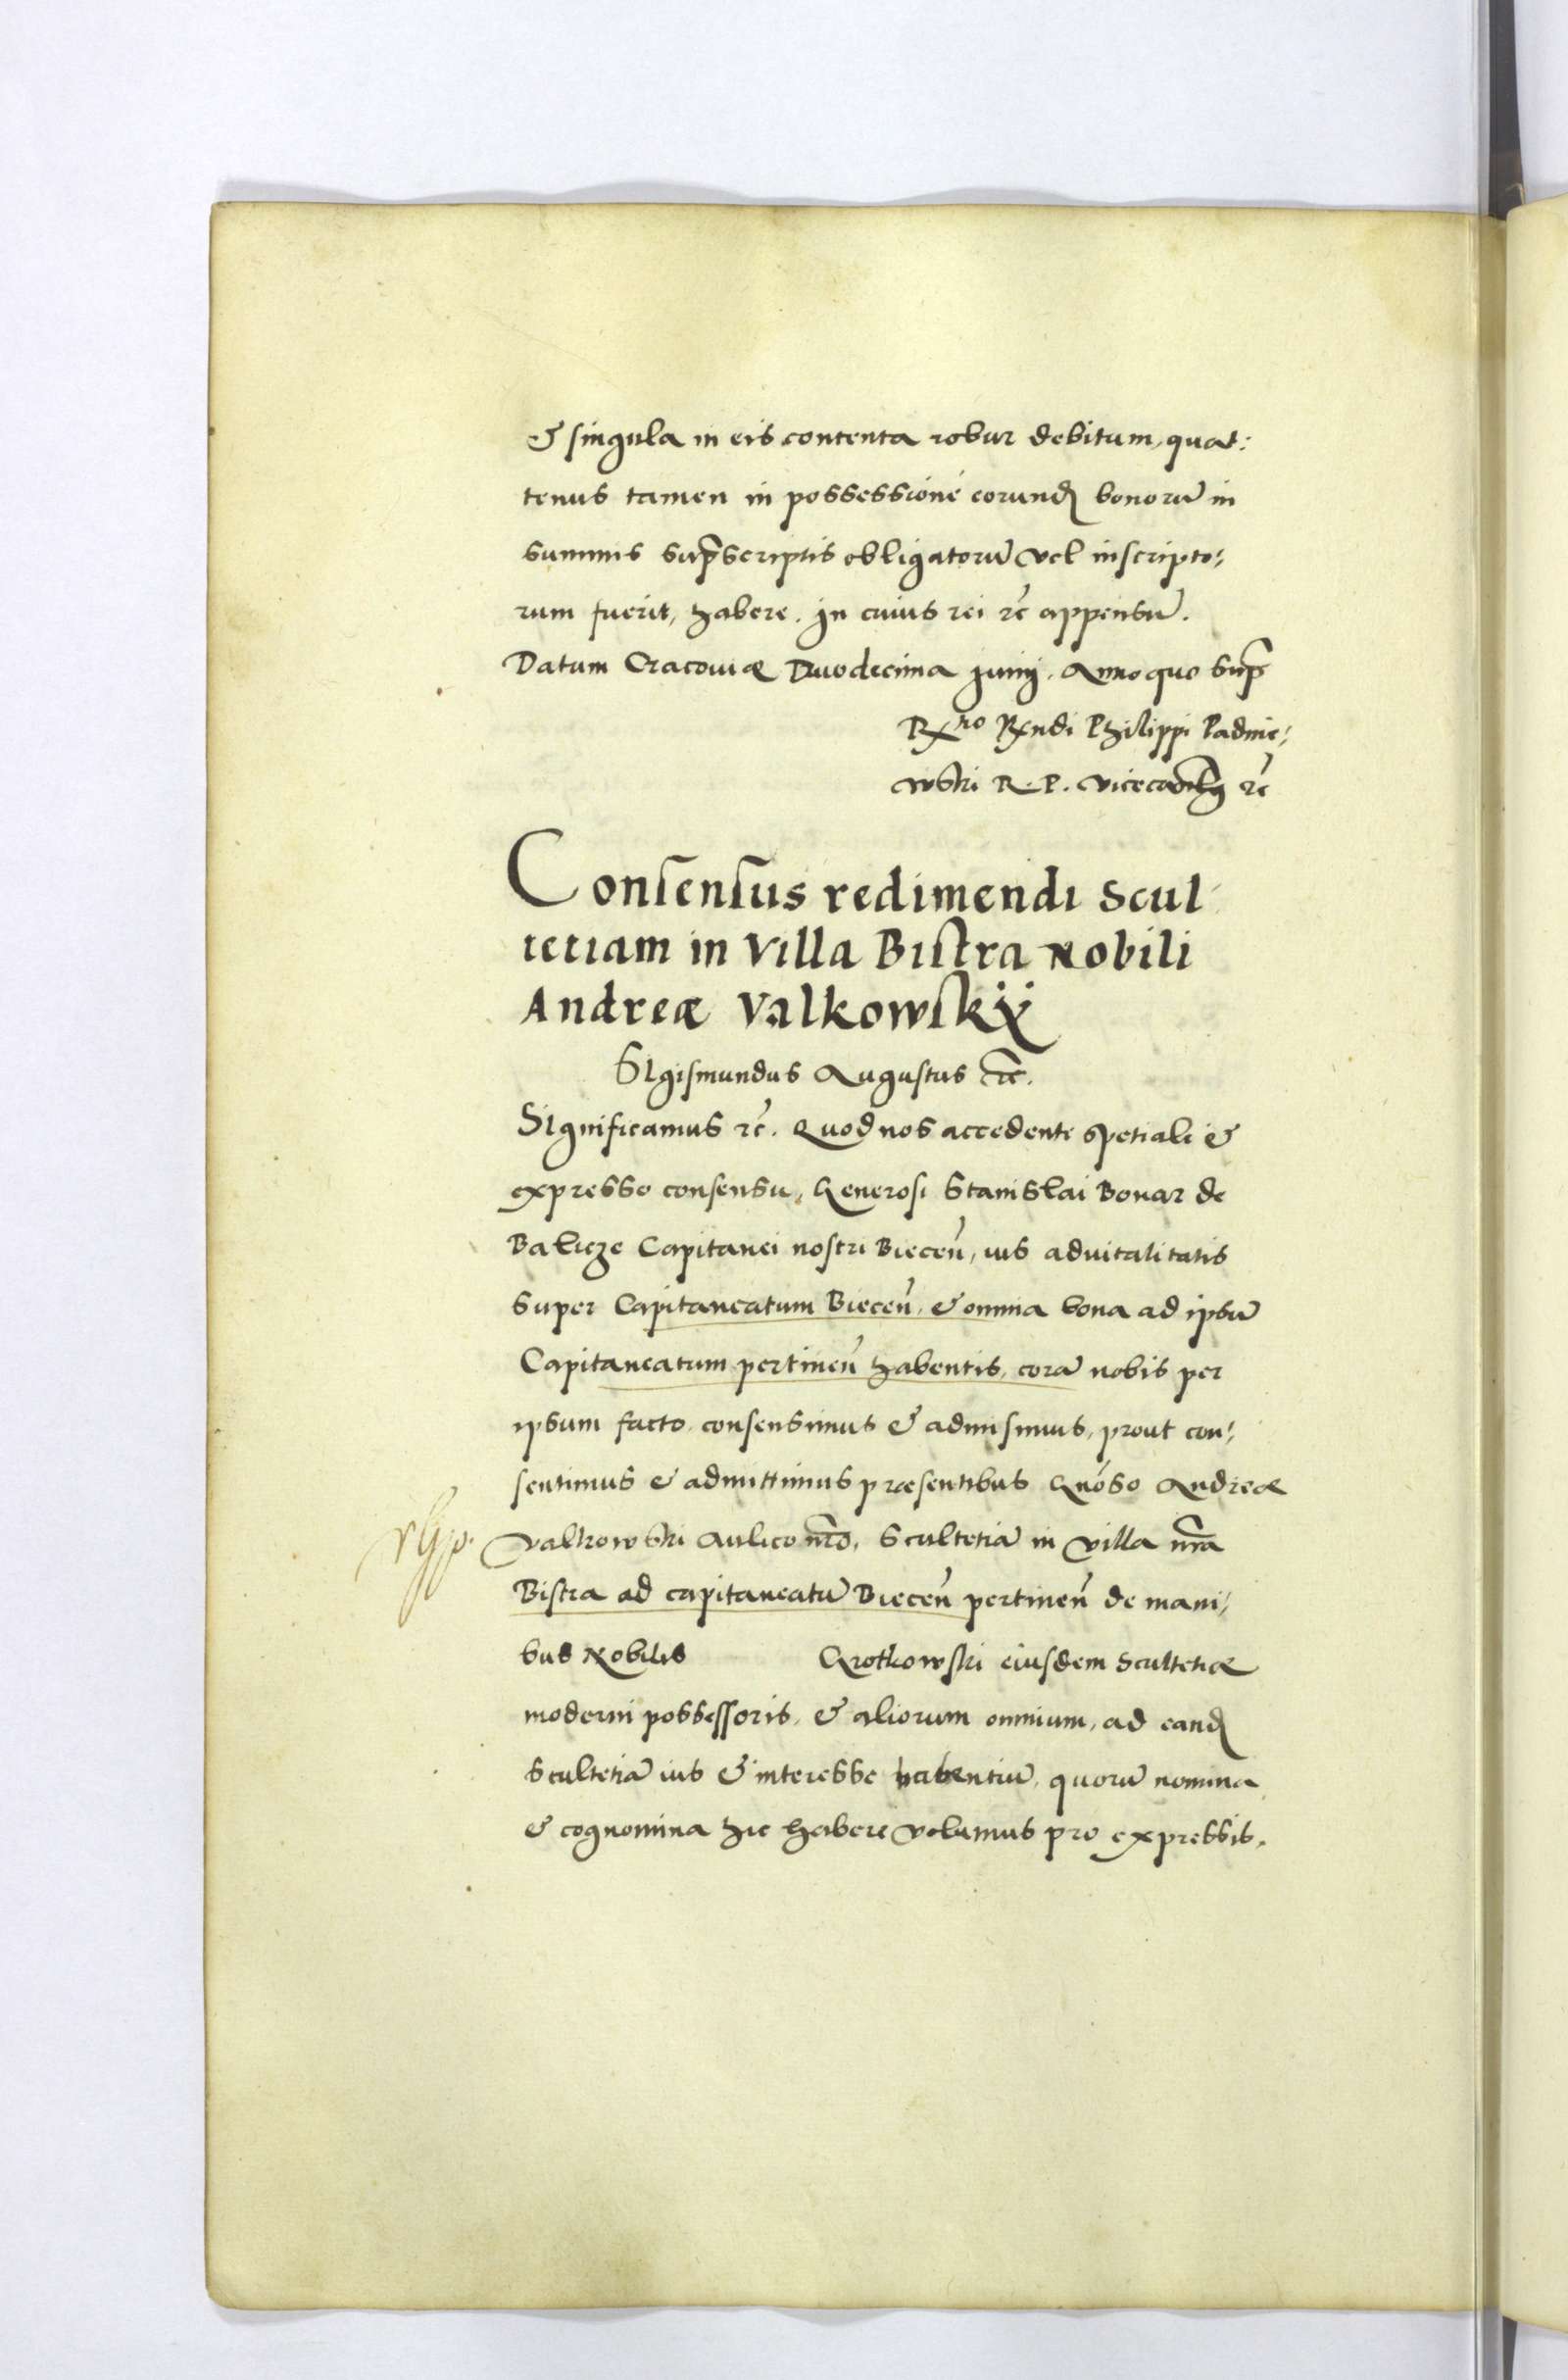 & singula in eis contenta robur debitum, quat:
tenus tamen in possessione eorund bonorū in
summis suprascriptis obligatorū vel inscripto,
rum fuerit, habere. In cuius rei etc̄ appensū.
Datum Cracoviæ Duodecima Junij. Anno quo Sup̄
Rtio Rxndi Philippi Padnie,
wski R. P. Vicecancellarij etc̄
Consensus redimendi Scul
tetiam in Villa Bistra Nobili
Andreæ Valkowskÿ
SIgismundus Augustus etc̄.
SIgnificamus etc̄. Quod nos accedente spetiali &
expresso consensu, Generosi Stanislai Bonar de
Balicze Capitanei nostri Biecen̄, ius advitalitatis
super Capitaneatum Biecen̄, & omnia bona ad ipsū
Capitaneatum pertinen̄ habentis, corā nobis per
ipsum facto, consensimus & admisimus, prout con,
sentimus & admittimus præsentibus Gnōso Andreæ
Valkowski Aulico nr̄o, Scultetiā in Villa nr̄a
Bistra ad capitaneatū Biecen̄ pertinen̄ de mani,
bus Nobilis Grotkowski eiusdem Scultetiæ
moderni possessoris, & aliorum omnium, ad eand
Scultetiā ius & interesse habentiū, quorū nomina
& cognomina hic habere volumus pro expressis,